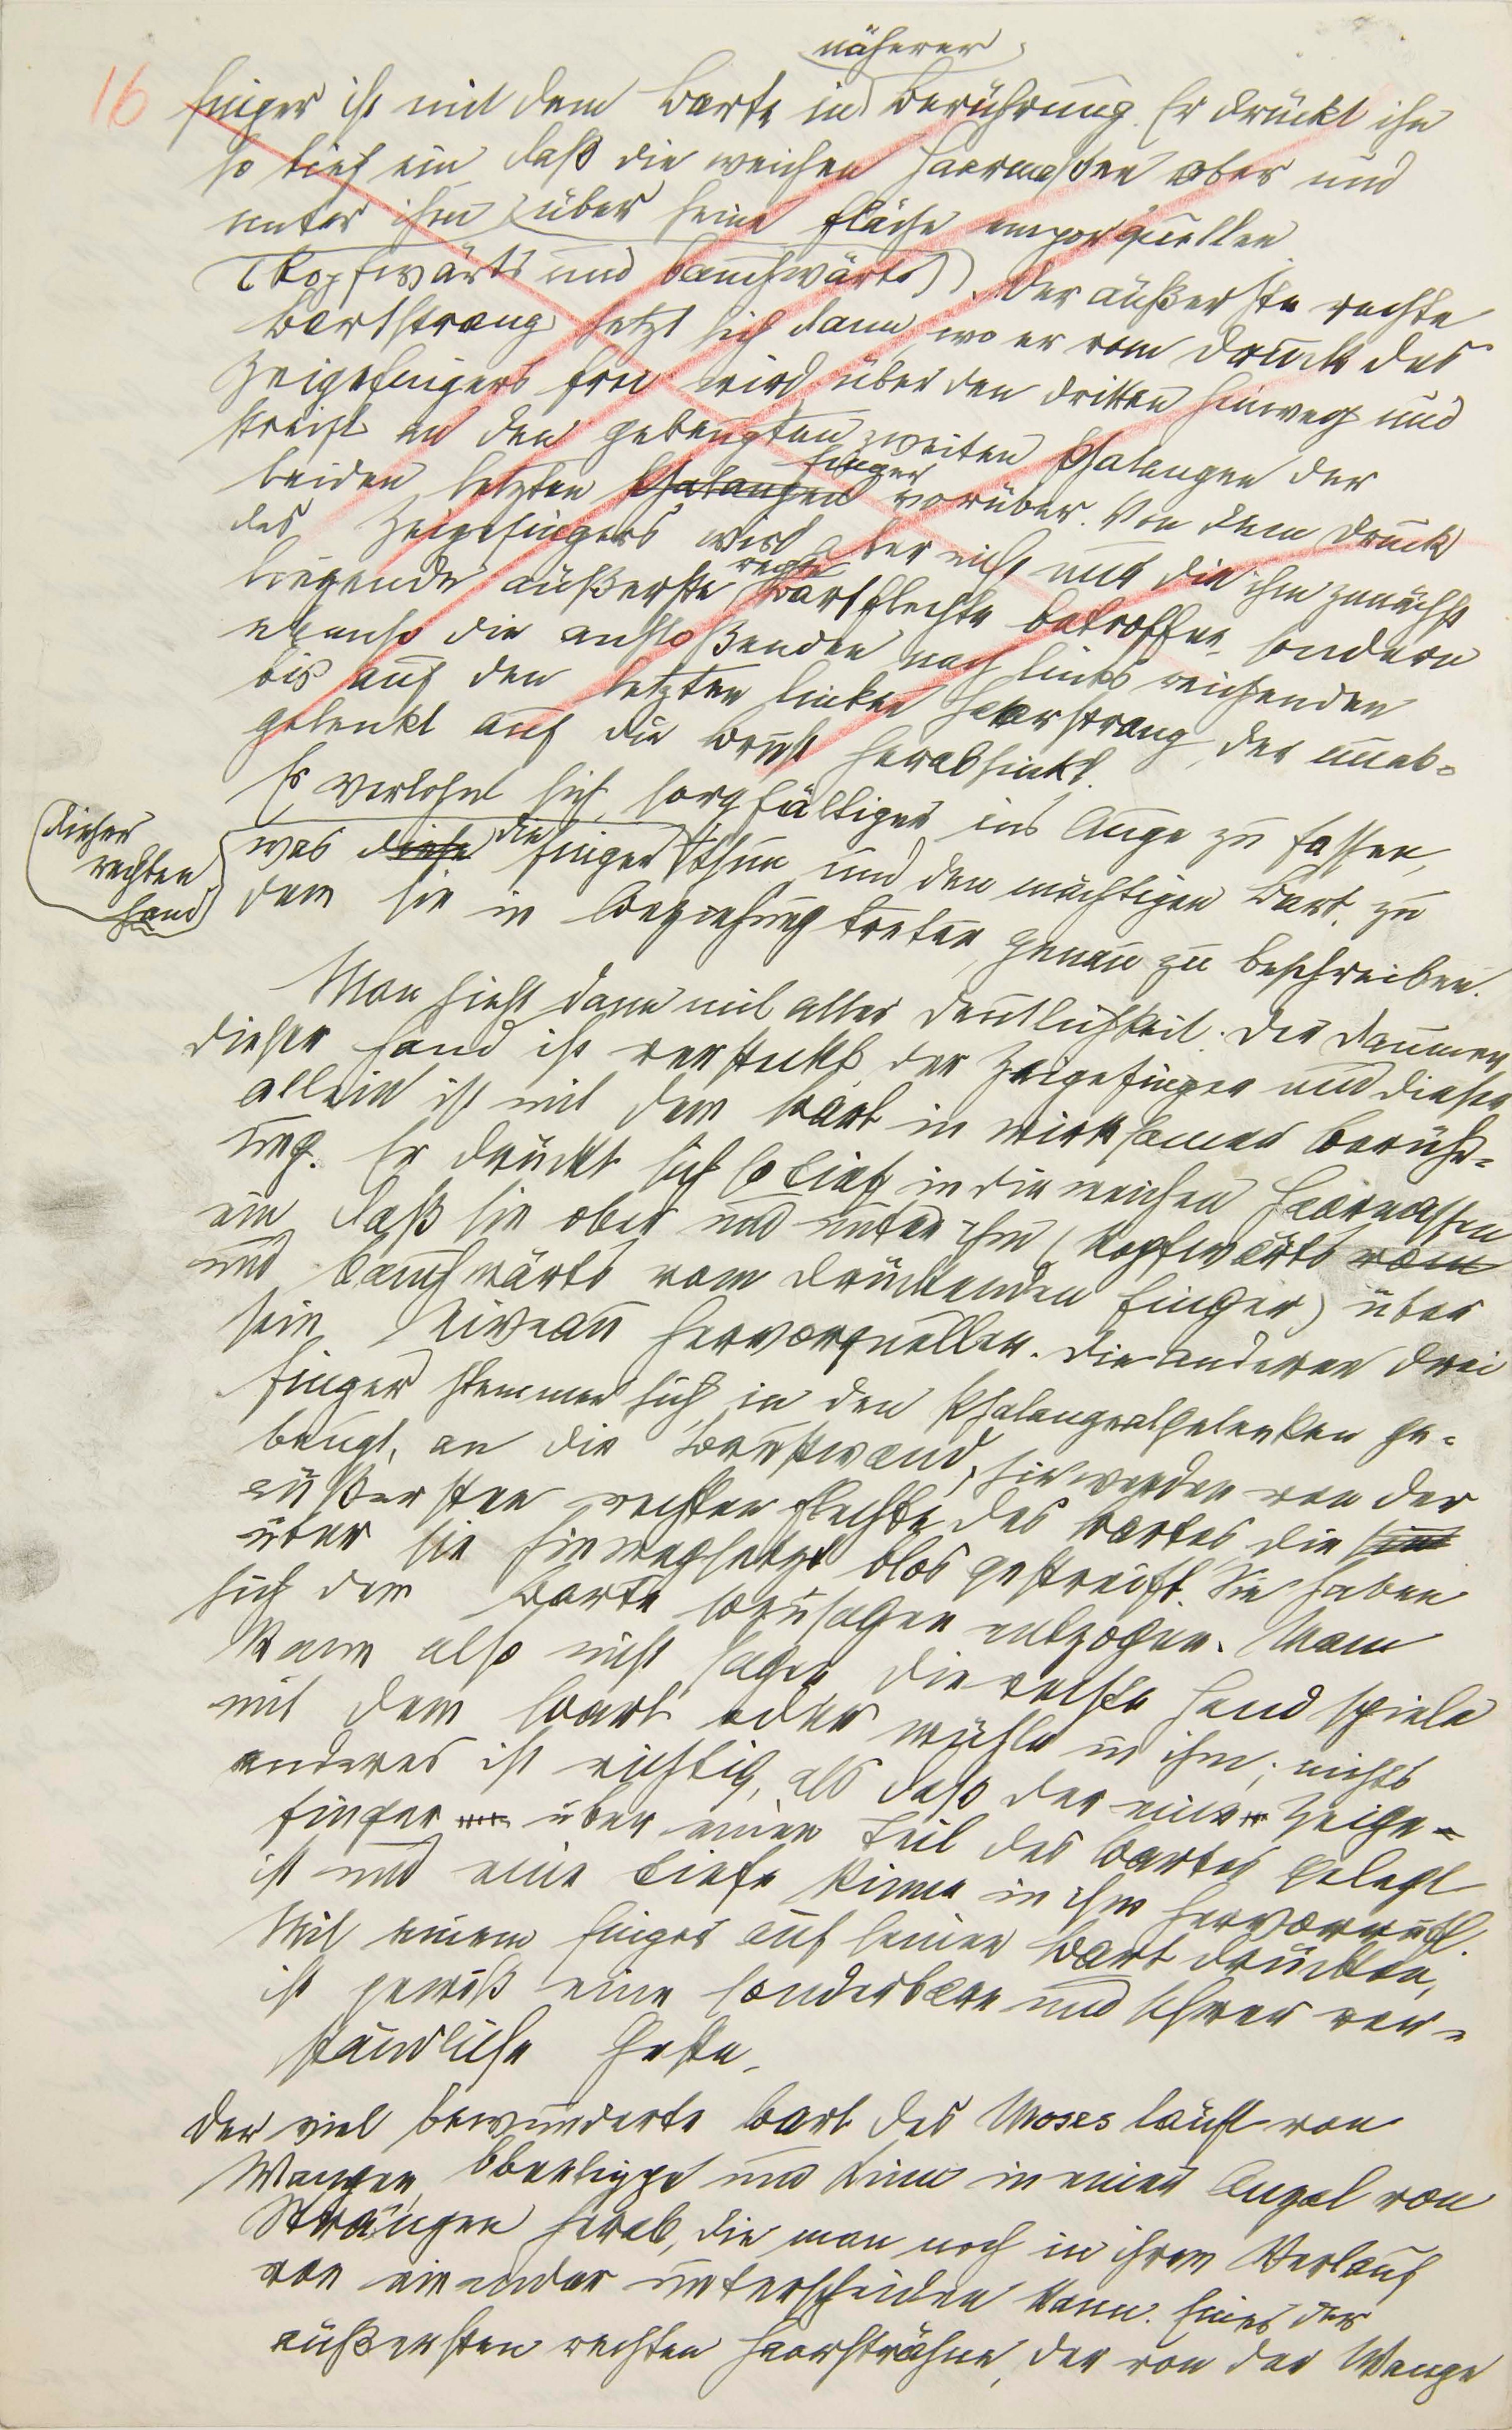 näherer
16 finger ist mit dem Barte in Berührung. Er drückt ihn
so tief ein daß die weichen Haarmassen ober und
unter ihm über seine Fläche emporquellen
(kopfwärts und bauchwärts). Der äußerste rechte
Bartstrang setzt sich dann, wo er vom Druck des
Zeigefingers frei wird über den dritten hinweg und
streift an den gebeugten zweiten Phalangen der
finger
beiden letzten Phalangen vorüber. Von dem Druck
des Zeigefingers wird aber nicht nur die ihm zunächst
rechte
liegende äußerste Bartflechte betroffen, sondern
ebenso die anstoßenden nach links reichenden
bis auf den letzten linken Haarstrang, der unab-
gelenkt auf die Brust herabsinkt.
Es verlohnt sich, sorgfältiger ins Auge zu fassen,
dieser
rechten
Hand
was diese die Finger thun und den mächtigen Bart, zu
dem sie in Beziehung treten, genau zu beschreiben.
Man sieht dann mit aller Deutlichkeit: Der Daumen
dieser Hand ist versteckt, der Zeigefinger und dieser
allein ist mit dem Bart in wirksamer Berühr-
ung. Er drückt sich so tief in die weichen Haarmassen
ein, daß sie ober und unter ihm (kopfwärts vom
und bauchwärts vom drückenden Finger) über
sein Niveau hervorquellen. Die anderen drei
Finger stemmen sich, in den Phalangealgelenken ge-
beugt, an die Brustwand, sie werden von der
äußersten rechten Flechte des Bartes die
über sie hinwegsetzt blos gestreift. Sie haben
sich dem Barte sozusagen entzogen. Man
kann also nicht sagen, die rechte Hand spiele
mit dem Bart oder wühle in ihm; nichts
anderes ist richtig, als daß der eine Zeige-
finger über einen Teil des Bartes gelegt
ist und eine tiefe Rinne in ihm hervorruft.
Mit einem Finger auf seinen Bart drücken,
ist gewiß eine sonderbare und schwer ver-
ständliche Geste.
Der viel bewunderte Bart des Moses läuft von
Wangen, Oberlippe und Kinn in einer Anzal von
Strängen herab, die man noch in ihrem Verlauf
von einander unterscheiden kann. Eines der
äußersten rechten Haarsträhne, der von der Wange